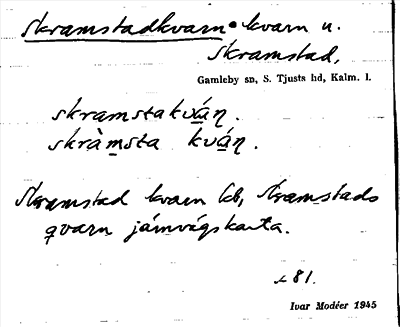 Skramstadkvarn • kvarn u.
Skramstad,
Gamleby sn, S. Tjusts hd, Kalm. l.
skramstakván.
skràmsta kván.
Skramstad kvarn Eb, Skramstads
qvarn järnvägskarta.
81.
Ivar Modéer 1945